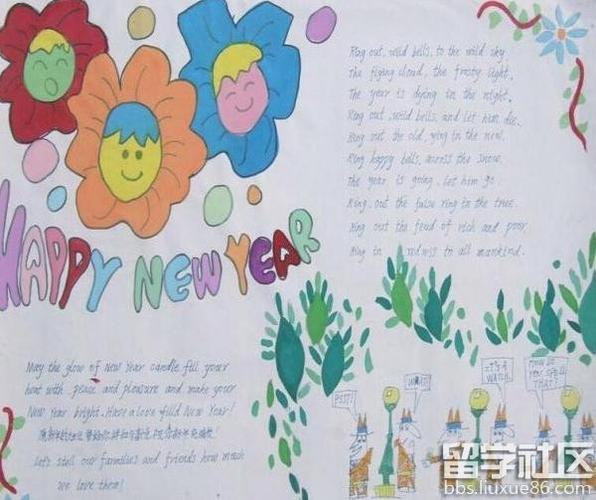 Ring out, wild bells, to the wild sky
The flying cloud, the frosty light.
The year is dying in the night.
Ring out, wild bells, and let him die.
Ring out the old, ring in the new.
Ring happy bells, across the snow.
The year is going, let him go.
Ring out the false ring in the tree.
Ring out the feud of rich and poor
Ring in redress to all mankind.
HAPPY NEW YEAR
May the glow of New Year candle fill your
heat with peace and pleasure and make your
New Year bright. Have a love filld New Year!
Let's stell our families and friends how much
we love them!
PST!
WHAT?
IT'S A WATCH
HOW DO YOU SPELL THAT?
留学社区
bbs.liuxue86.com